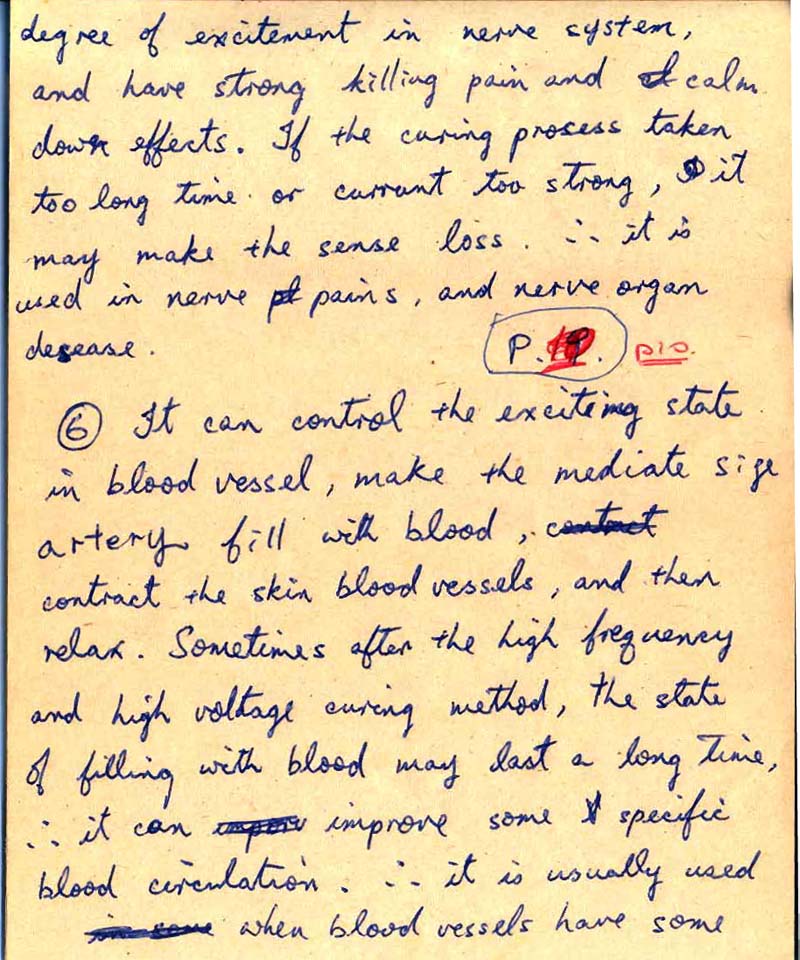 degree of excitement in nerve system,
and have strong killing pain and calm
down effects. If the curing prosess taken
too long time or currant too strong, it
may make the sense loss. ∴ it is
used in nerve pains, and nerve organ
desease.
P. 19. p10.
⑥ It can control the exciteing state
in blood vessel, make the mediate size
artery fill with blood, contract
contract the skin blood vessels, and then
relax. Sometimes after the high frequency
and high voltage curing method, the state
of filling with blood may last a long time,
∴ it can improve some specific
blood circulation. ∴ it is usually used
in some when blood vessels have some